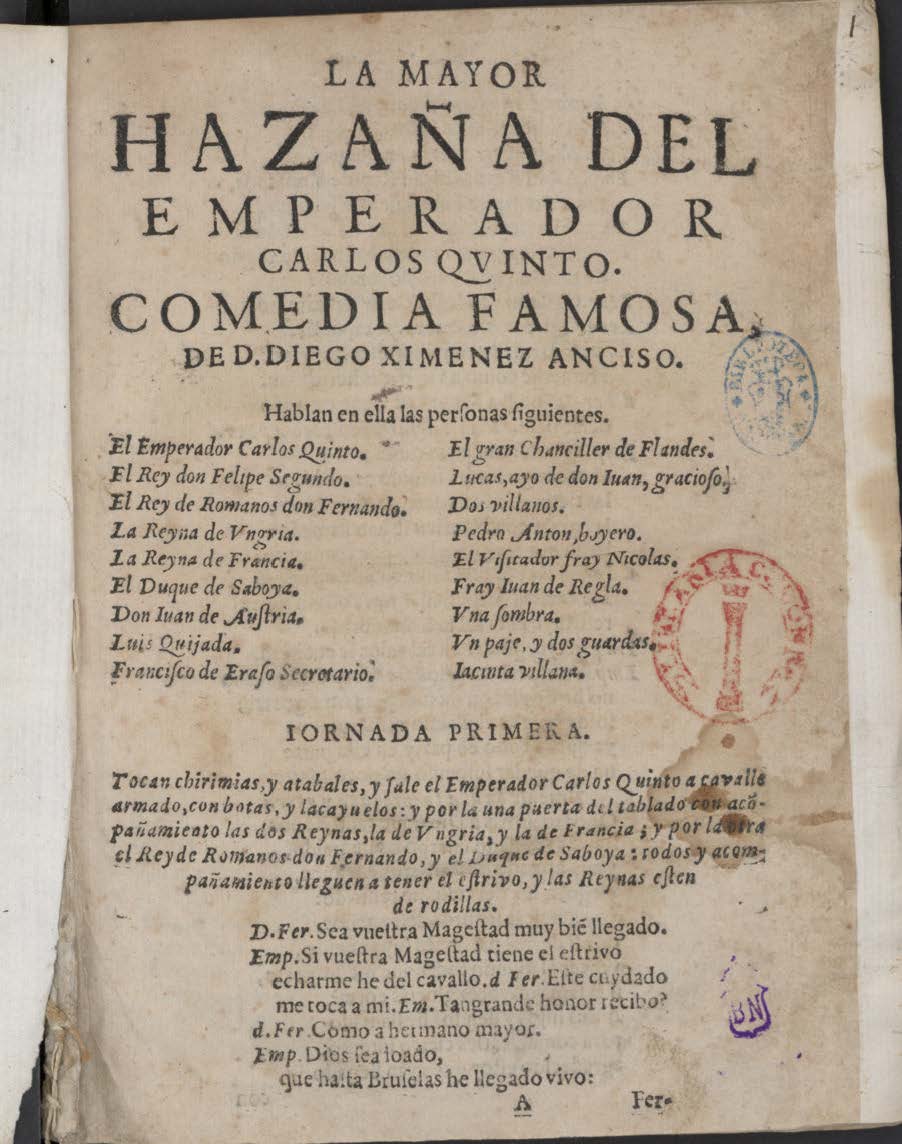 1
LA MAYOR
HAZAÑA DEL
EMPERADOR
CARLOS QVINTO.
COMEDIA FAMOSA,
DE D. DIEGO XIMENEZ ANCISO.
Hablan en ella las perſonas ſiguientes.
El Emperador Carlos Quinto.
El Rey don Felipe Segundo.
El Rey de Romanos don Fernando.
La Reyna de Vngria.
La Reyna de Francia.
El Duque de Saboya.
Don Iuan de Auſtria.
Luis Quijada.
Franciſco de Eraſo Secretario.
El gran Chanciller de Flandes.
Lucas, ayo de don Iuan, gracioſo.
Dos villanos.
Pedro Anton, boyero.
El Viſitador fray Nicolas.
Fray Iuan de Regla.
Vna ſombra.
Vn paje, y dos guardas.
Iacinta villana.
BIBLIOTECA
IORNADA PRIMERA.
Tocan chirimias, y atabales, y ſale el Emperador Carlos Quinto a cavallo
armado, con botas, y lacayuelos: y por la una puerta del tablado con acõ-
pañamiento las dos Reynas, la de Vngria, y la de Francia; y por la otra
el Rey de Romanos don Fernando, y el Duque de Saboya: todos y acom-
pañamiento lleguen a tener el eſtrivo, y las Reynas eſten
de rodillas.
D. Fer. Sea vueſtra Mageſtad muy biẽ llegado.
Emp. Si vueſtra Mageſtad tiene el eſtrivo
echarme he del cavallo. d Fer. Eſte cuydado
me toca a mi. Em. Tan grande honor recibo?
d. Fer. Como a hermano mayor.
Emp. Dios ſea loado,
que haſta Bruſelas he llegado vivo:
A Fer-
BN